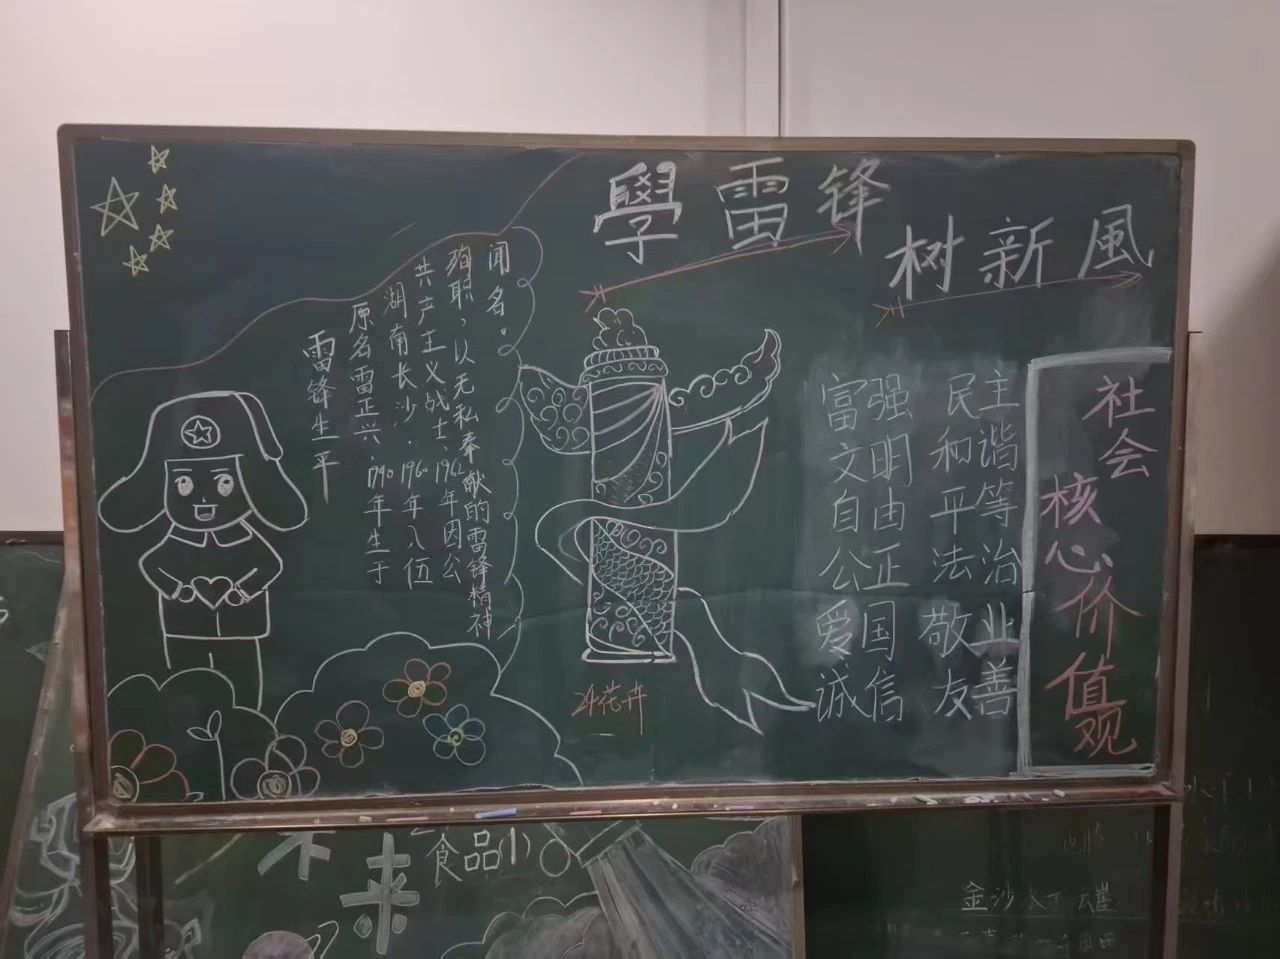 學雷锋
树新風
雷锋生平
原名雷正兴.1940年生于
湖南长沙.1960年入伍
共产主义战士.1962年因公
殉职,以无私奉献的雷锋精神
闻名。
富强 民主
文明 和谐
自由 平等
公正 法治
爱国 敬业
诚信 友善
社会
核心价值观
24花卉
未来
食品(1)
金沙水